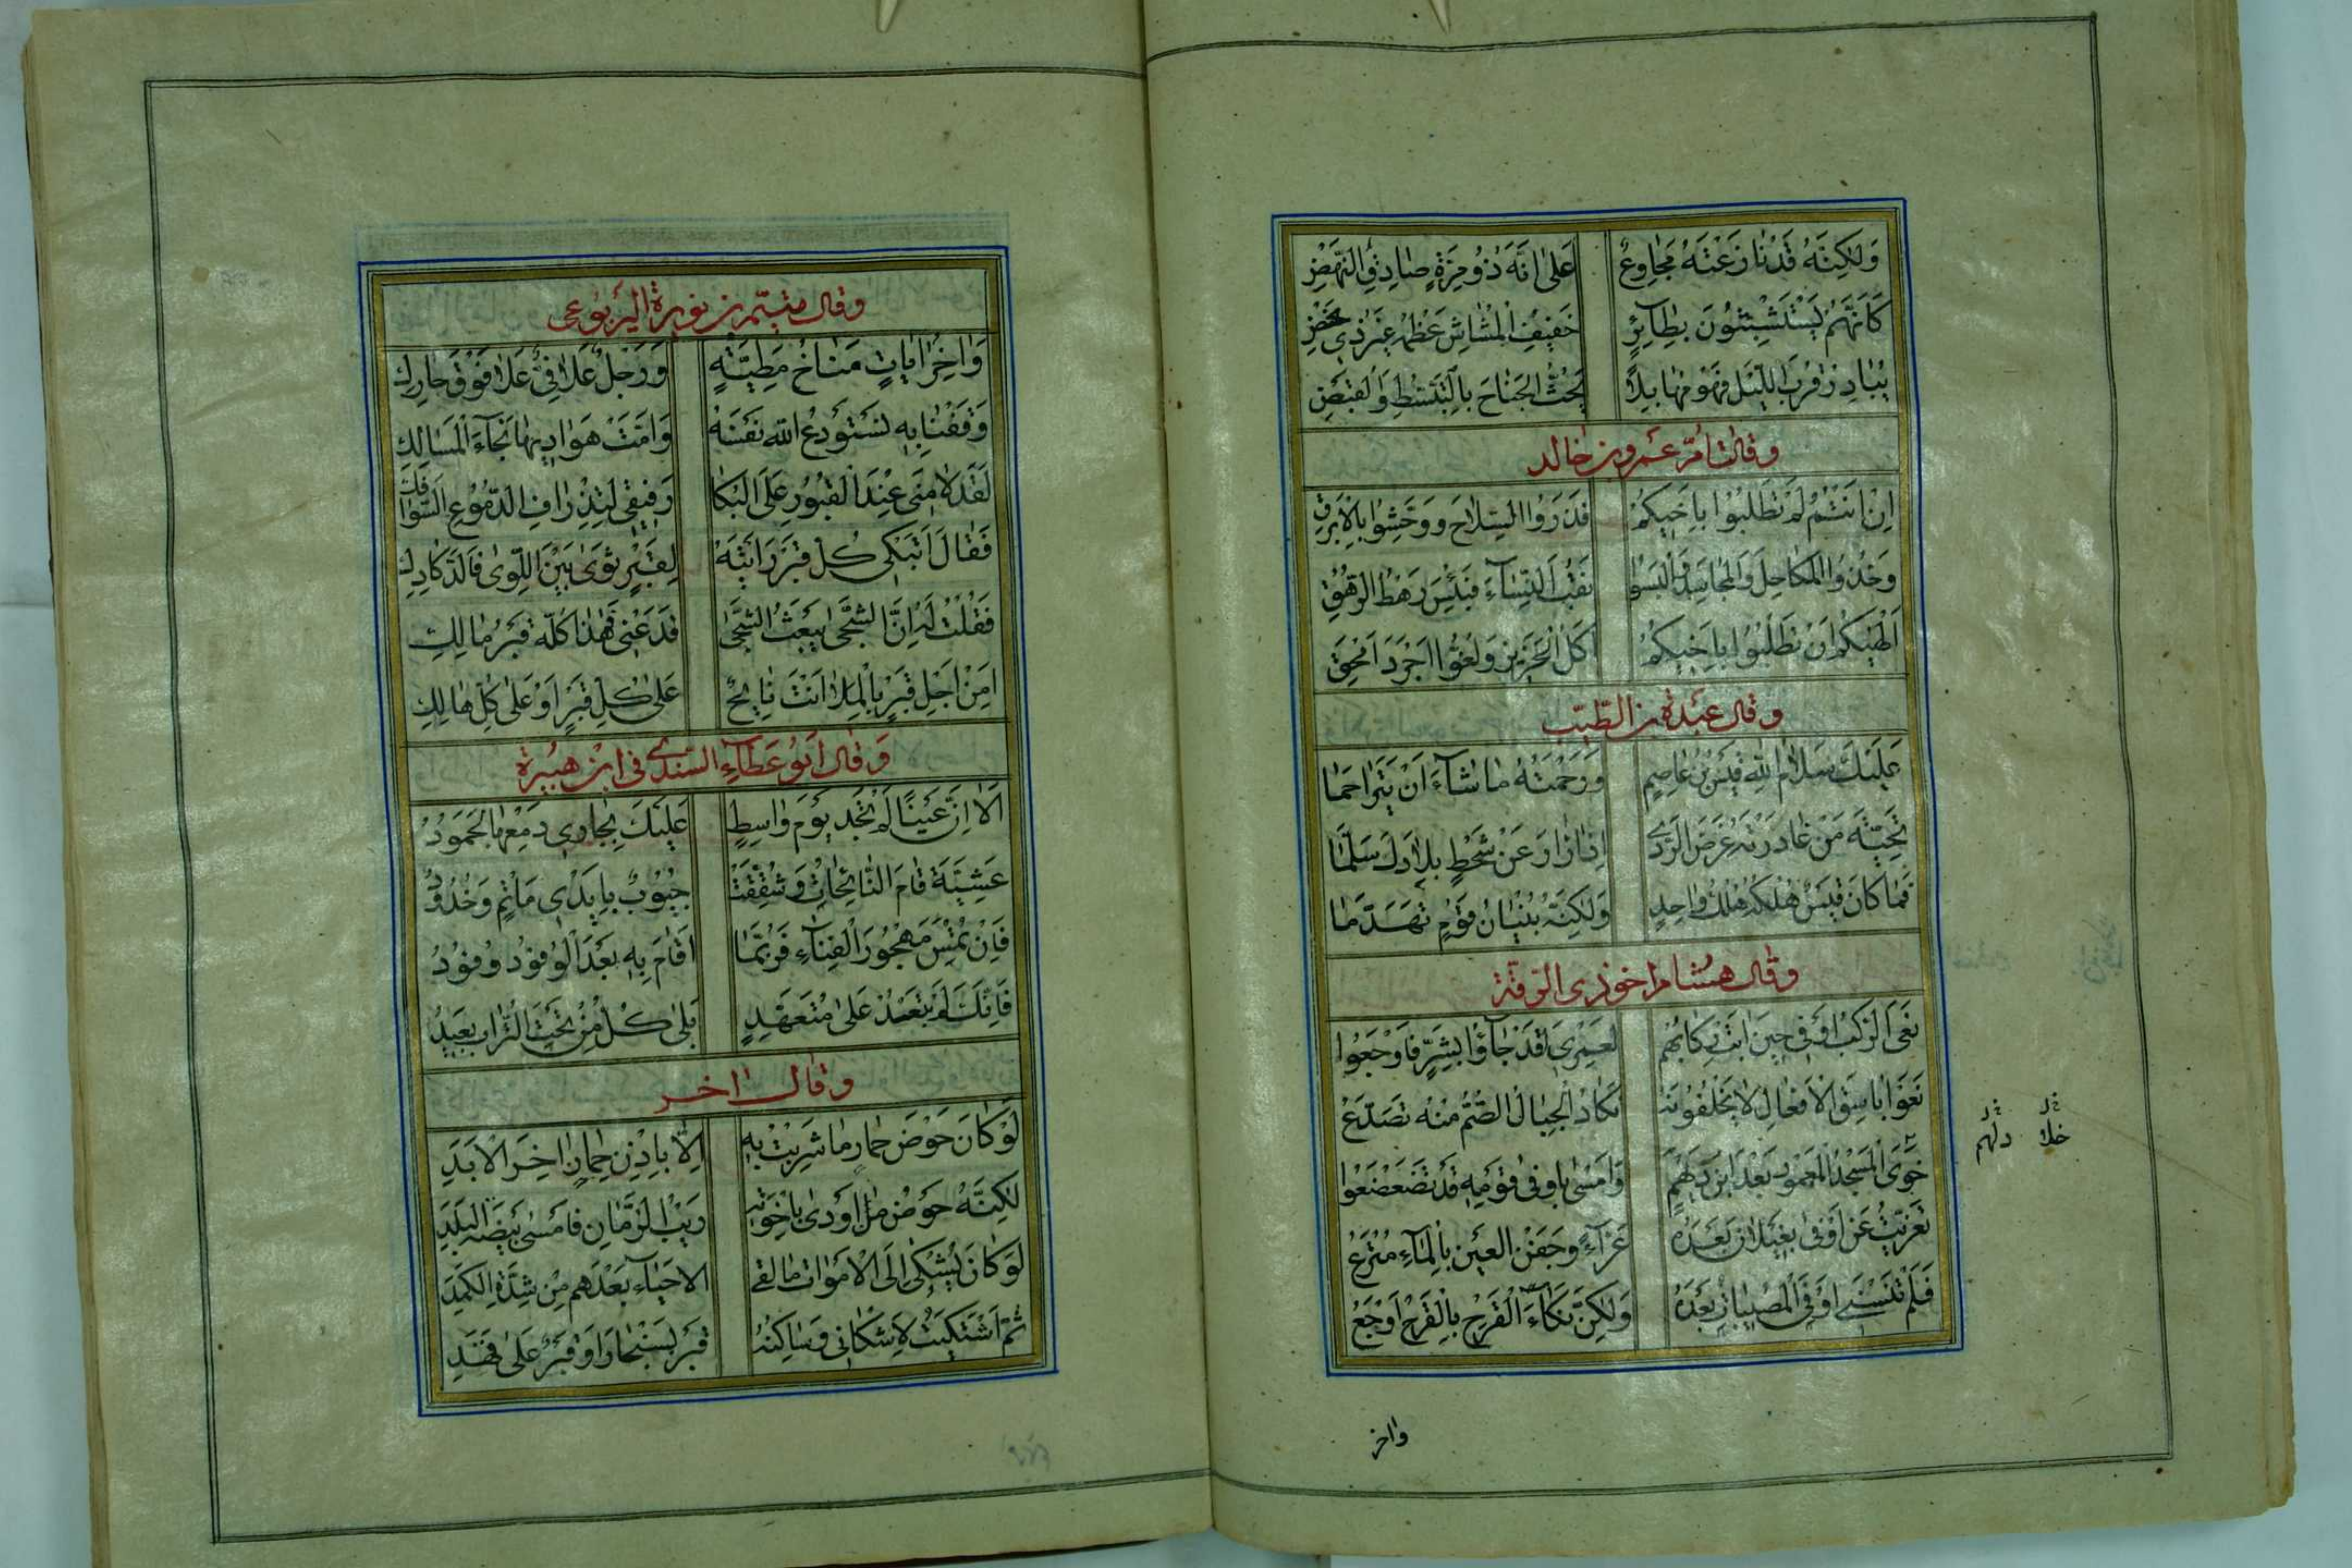 وَلٰكِنَّهُ قَدْ نَازَعَتْهُ مَجَاوِعٌ عَلىٰ اَنَّهُ ذُو مِرَّةٍ صَادِقُ النَّهْضِ
كَاَنَّهُمْ يَسْتَشْبِثُونَ بِطَآئِرٍ خَفِيفِ الْمُشَاشِ عَظْمُهُ غَيْرُ ذِي نَحْضِ
يُبَادِرُ قُرْبَ اللَّيْلِ فَهْوَ مُهَابِذٌ يَحُثُّ الْجَنَاحَ بِالتَّبَسُّطِ وَالْقَبْضِ
وقالت امّ عمرو بن خالد
اِنْ اَنْتُمُ لَمْ تَطْلُبُوا بِاَخِيكُمُ فَذَرُوا السِّلَاحَ وَوَحِّشُوا بِالْاَبْرَقِ
وَخُذُوا الْمَكَاحِلَ وَالْمَجَاسِدَ وَالْبَسُوا نُقُبَ النِّسَآءِ فَبِئْسَ رَهْطُ الْمُرْهَقِ
اَلْهٰيكُمُ اَنْ تَطْلُبُوا بِاَخِيكُمُ اَكْلُ الْخَزِيزِ وَلَعْقُ اَجْرَدَ اَمْحَقِ
وقال عبدة بن الطّبيب
عَلَيْكَ سَلَامُ اللّٰهِ قَيْسَ بْنَ عَاصِمٍ وَرَحْمَتُهُ مَا شَآءَ اَنْ يَتَرَاحَمَا
تَحِيَّةَ مَنْ غَادَرْتَهُ غَرَضَ الرَّدىٰ اِذَا زَارَ عَنْ شَحْطٍ بِلَادَكَ سَلَّمَا
فَمَا كَانَ قَيْسٌ هُلْكُهُ هُلْكُ وَاحِدٍ وَلٰكِنَّهُ بُنْيَانُ قَوْمٍ تَهَدَّمَا
وقال هشام اخو ذى الرّمّة
نَعَى الرَّكْبُ اَوْفى حِينَ ابَتْ رِكَابُهُمْ لَعَمْرِي لَقَدْ جَآؤُا بِشَرٍّ فَاَوْجَعُوا
نَعَوْا بَاسِقَ الْاَفْعَالِ لَا يَخْلُفُونَهُ تَكَادُ الْجِبَالُ الصُّمُّ مِنْهُ تَصَدَّعُ
خَوَى الْمَسْجِدُ الْمَعْمُورُ بَعْدَ ابْنِ دَلْهَمٍ وَاَمْسىٰ بِاَوْفى قَوْمُهُ قَدْ تَضَعْضَعُوا
خلا دلهم
تَعَزَّيْتُ عَنْ اَوْفىٰ بِغَيْلَانَ بَعْدَهُ عَزَآءً وَجَفْنُ الْعَيْنِ بِالْمَآءِ مُتْرَعُ
فَلَمْ تُنْسِنِي اَوْفَى الْمُصِيبَاتُ بَعْدَهُ وَلٰكِنَّ نَكَاءَ الْقَرْحِ بِالْقَرْحِ اَوْجَعُ
واخر
وقال متمّم بن نويرة اليربوعى
وَاخِرُ ايَاتٍ مَنَاخُ مَطِيَّةٍ وَرَحْلٌ عَلَافِيٌّ عَلَا فَوْقَ حَارِكِ
وَقَفْنَا بِهِ نَسْتَوْدِعُ اللّٰهَ نَفْسَهُ وَاَمَّتْ هَوَادِيهَا نِجَآءَ الْمَسَالِكِ
لَقَدْ لَامَنِى عِنْدَ الْقُبُورِ عَلَى الْبُكَا رَفِيقِى لِتَذْرَافِ الدُّمُوعِ السَّوَافِكِ
فَقَالَ اَتَبْكِى كُلَّ قَبْرٍ رَاَيْتَهُ لِقَبْرٍ ثَوٰى بَيْنَ اللِّوٰى فَالدَّكَادِكِ
فَقُلْتُ لَهُ اِنَّ الشَّجٰى يَبْعَثُ الشَّجٰى فَدَعْنِى فَهٰذَا كُلُّهُ قَبْرُ مَالِكِ
اَمِنْ اَجْلِ قَبْرٍ بِالْمَلَا اَنْتَ نَائِحٌ عَلىٰ كُلِّ قَبْرٍ اَوْ عَلىٰ كُلِّ هَالِكِ
وَقال ابو عطآء السندى فى ابن هبيرة
اَلَا اِنَّ عَيْنًا لَمْ تَجُدْ يَوْمَ وَاسِطٍ عَلَيْكَ بِجَارِي دَمْعِهَا لَجَمُودُ
عَشِيَّةَ قَامَ النَّائِحَاتُ وَشُقِّقَتْ جُيُوبٌ بِاَيْدِى مَاْتَمٍ وَخُدُودُ
فَاِنْ تُمْسِ مَهْجُورَ الْفِنَآءِ فَرُبَّمَا اَقَامَ بِهِ بَعْدَ الْوُفُودِ وُفُودُ
فَاِنَّكَ لَمْ تَبْعُدْ عَلىٰ مُتَعَهِّدٍ بَلىٰ كُلُّ مَنْ تَحْتَ التُّرَابِ بَعِيدُ
وقال اخر
لَوْ كَانَ حَوْضَ حِمَارٍ مَا شَرِبْتَ بِهِ اِلَّا بِاِذْنِ حِمَارٍ اخِرَ الْاَبَدِ
لٰكِنَّهُ حَوْضُ مَنْ اَوْدىٰ بِاِخْوَتِهِ رَيْبُ الزَّمَانِ فَاَمْسىٰ بَيْضَةَ الْبَلَدِ
لَوْ كَانَ يُشْكىٰ اِلَى الْاَمْوَاتِ مَا لَقِىَ الْاَحْيَاءُ بَعْدَهُمْ مِنْ شِدَّةِ الْكَمَدِ
ثُمَّ اشْتَكَيْتُ لَاَشْكَانِى وَسَاكِنُهُ قَبْرٌ بِسَنْجَارَ اَوْ قَبْرٌ عَلىٰ قَهَدِ